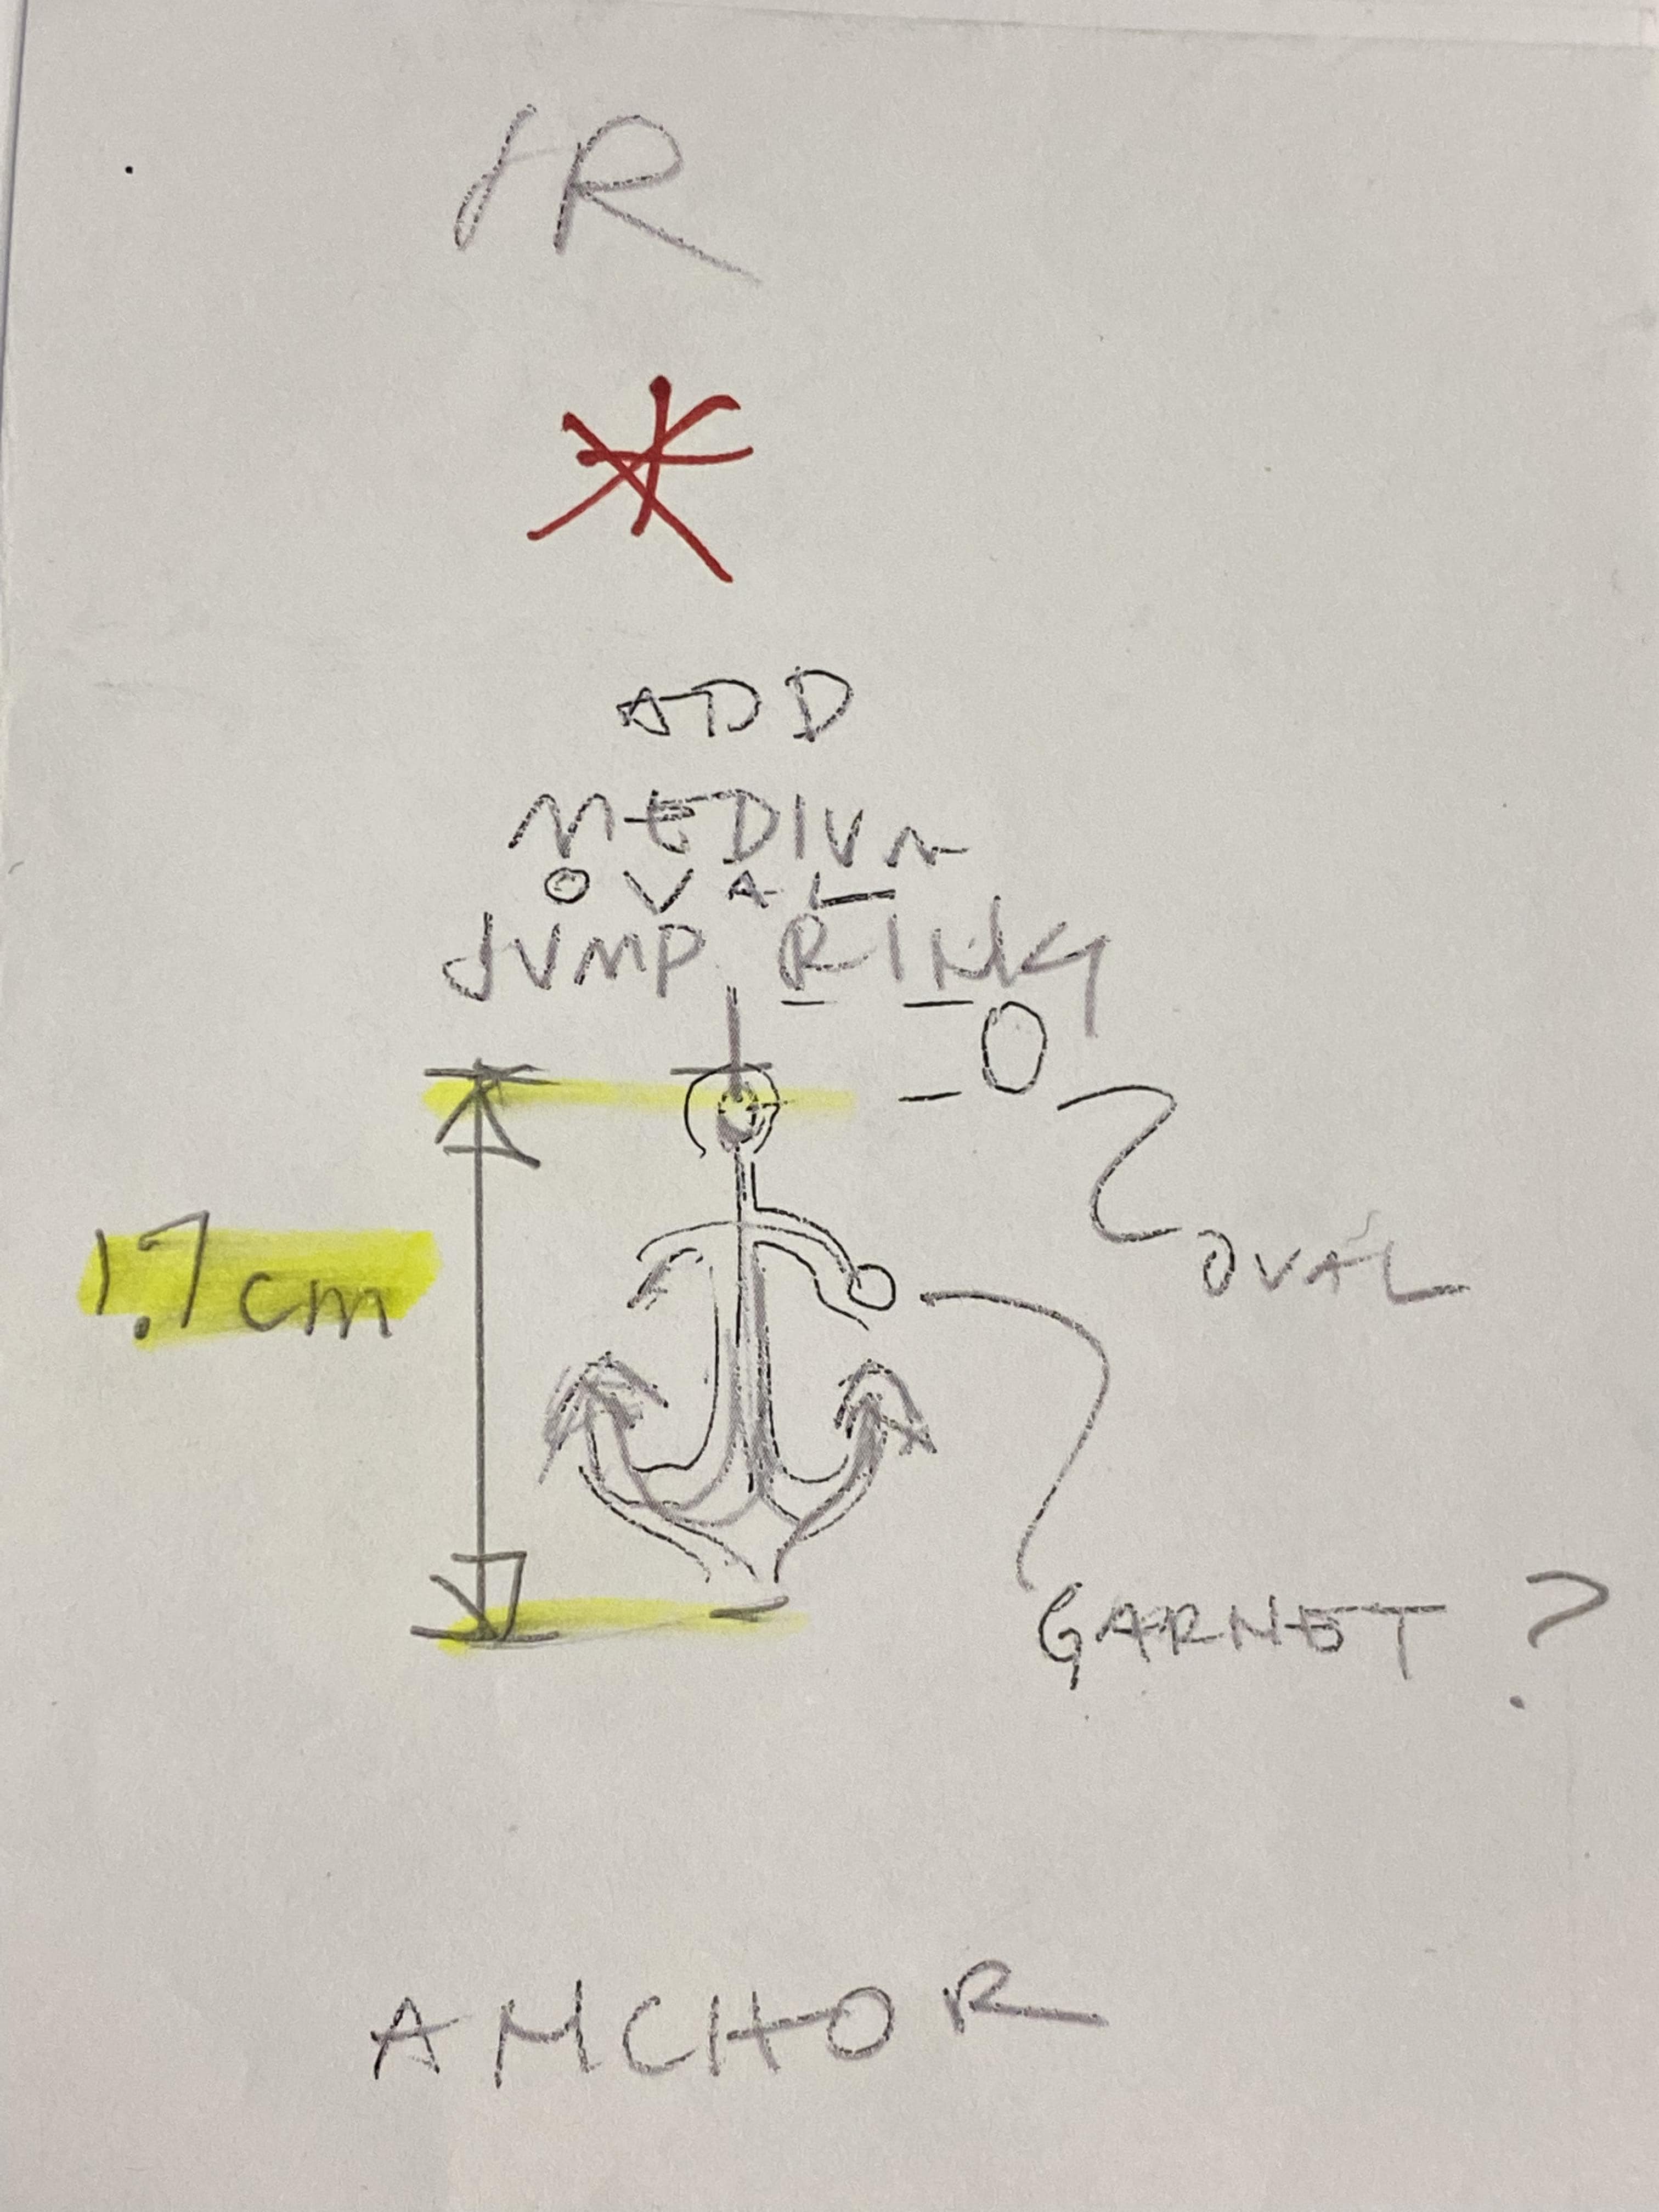 JR
ADD
MEDIUM
OVAL
JUMP RING
OVAL
1.7cm
GARNET ?
ANCHOR